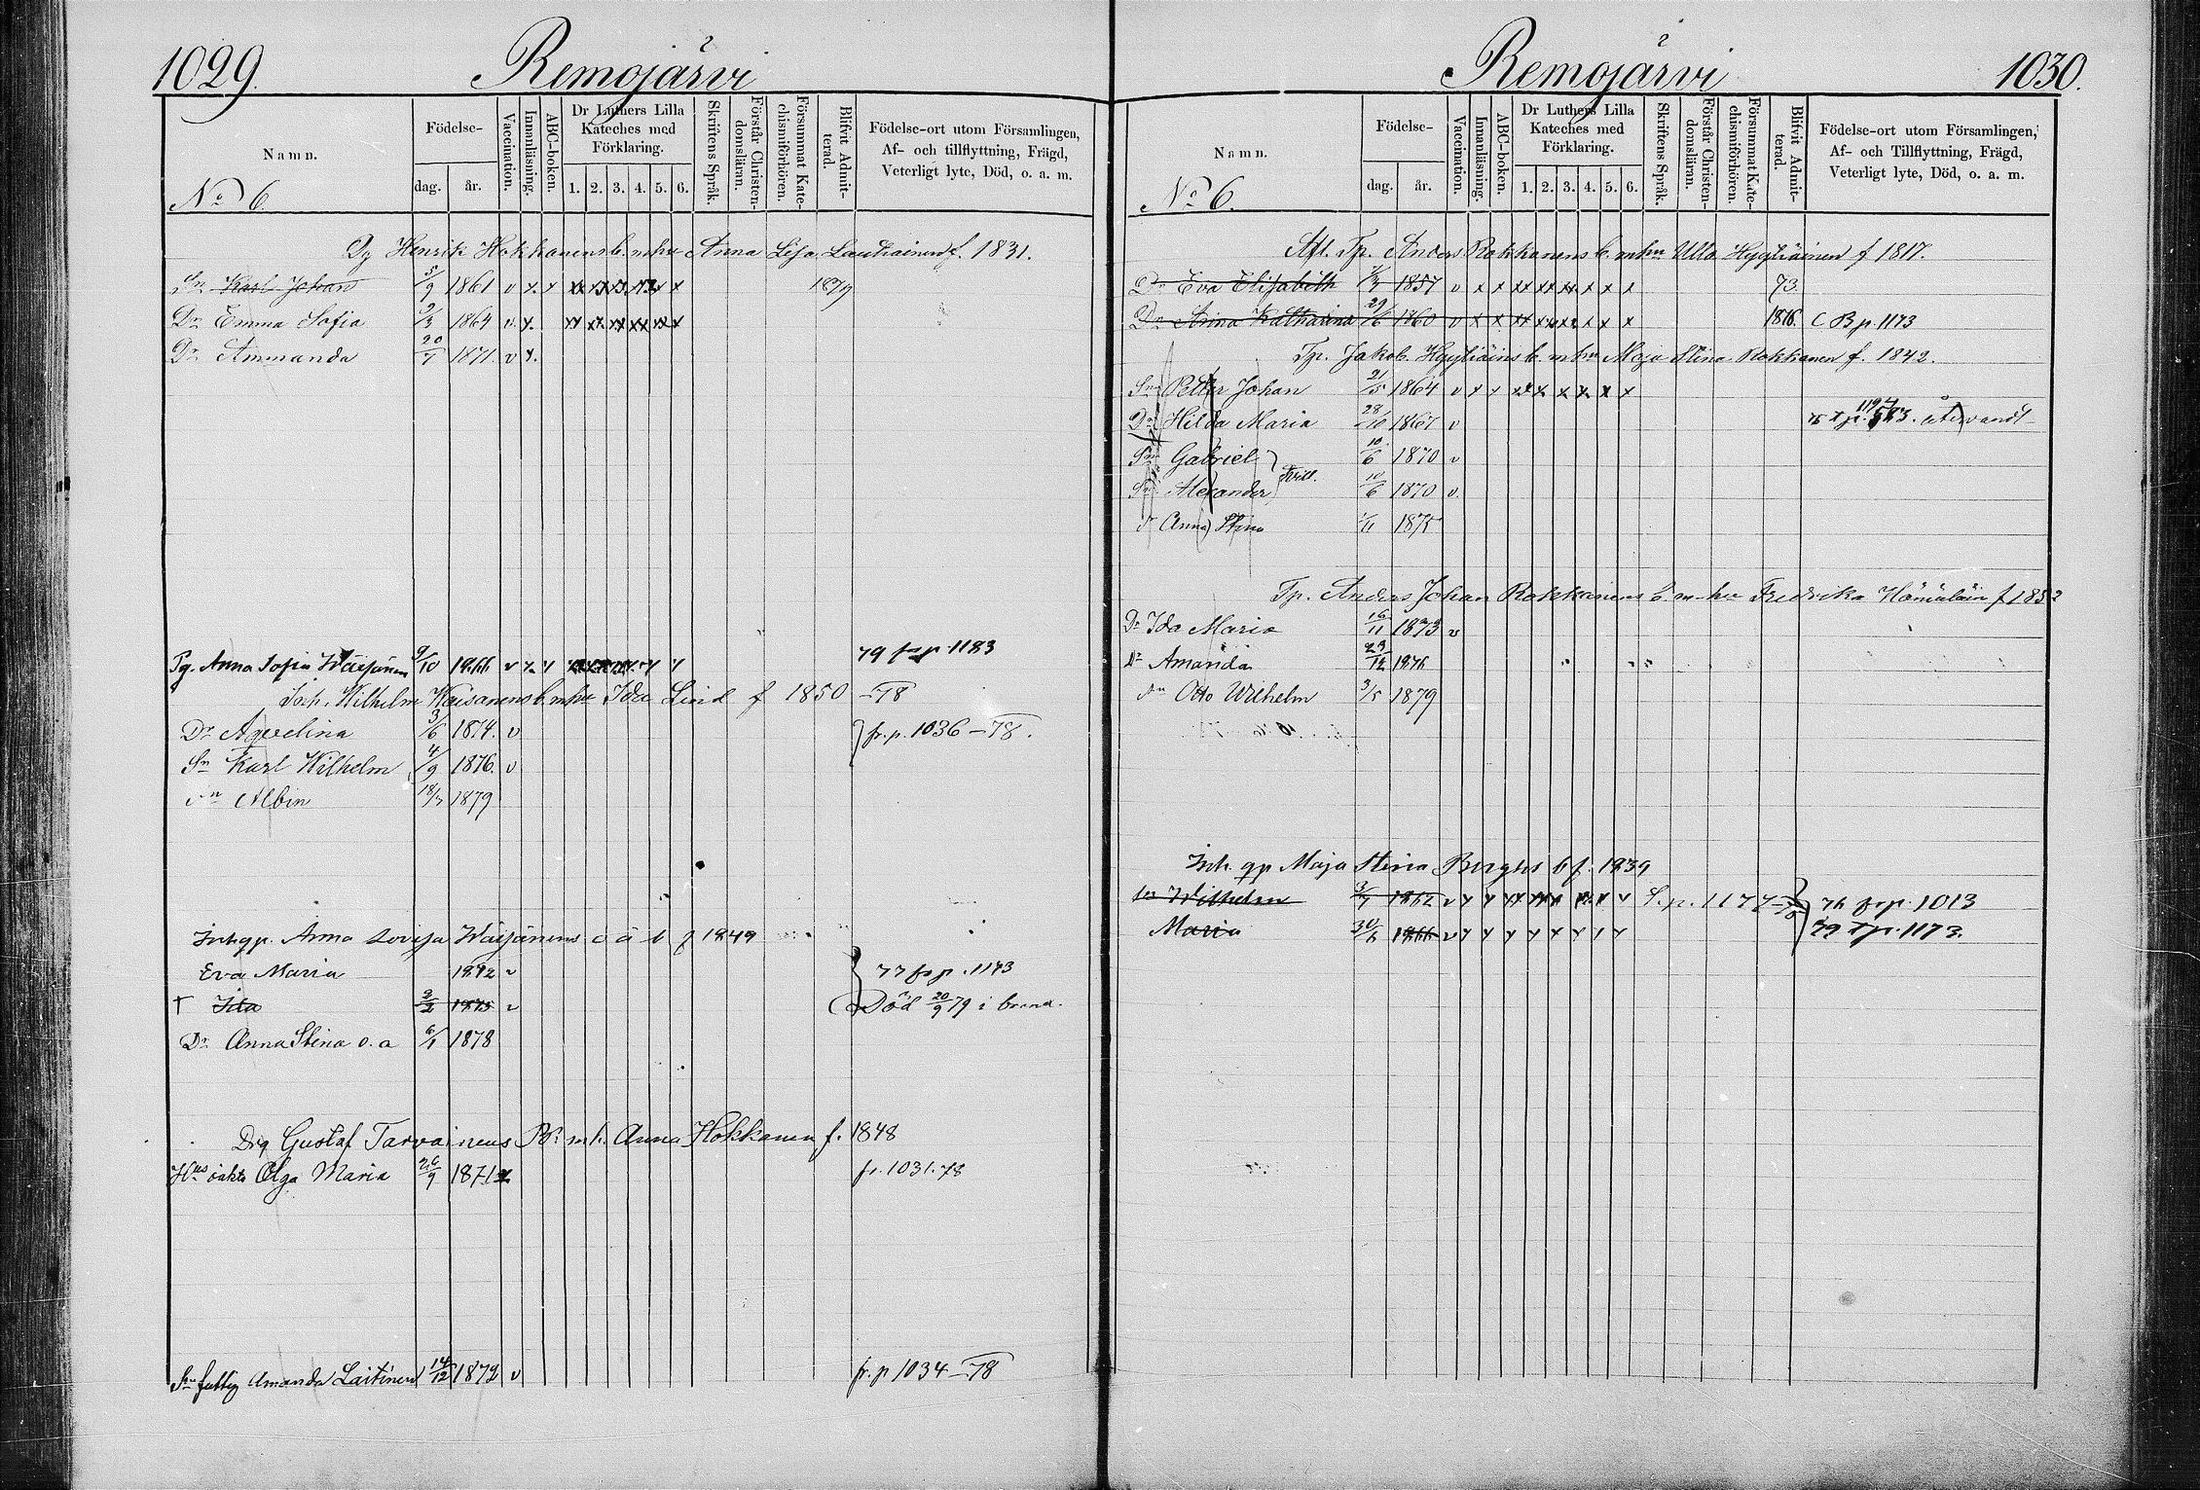 1029.
Remojärvi
Namn.
Födelse-
dag.
år.
Vaccination.
Innanläsning.
ABC-boken.
Dr Luthers Lilla Kateches med Förklaring.
1. 2. 3. 4. 5. 6.
Skriftens Språk.
Förstår Christendomsläran.
Försummat Katechismiförhören.
Blifvit Admitterad.
Födelse-ort utom Församlingen,
Af- och tillflyttning, Frägd,
Veterligt lyte, Död, o. a. m.
No 6.
Dg Henrik Hokkanens b. m. hu Anna Lisa Lauhainen f. 1831.
Sn Karl Johan 5/9 1861 v x x 1879
Dr Emma Sofia 9/3 1864 v x
Dr Ammanda 20/7 1871. v x.
Pg. Anna Sofia Wäisänen 9/10 1866 v 79 fr p. 1183
Inh. Wilhelm Waisanens b. m. hu Ida Lind f 1850 -78
Dr Aqvelina 3/6 1874. v fr. p. 1036 -78.
Sn Karl Wilhelm 4/9 1876. v
sn Albin 18/3 1879
Inhqp. Anna Lovisa Wäisänens o ä b f 1849
Eva Maria 1872 v 77 fr p. 1173
† Ida 2/2 1875 v Död 20/9 79 i brand.
Dr Anna Stina o. ä 6/1 1878
Drg Gustaf Tarvainens Bn m h. Anna Hokkanen f. 1848
Hus oäkta Olga Maria 26/9 1871 fr. 1031. 78
Amanda Laitinen 14/12 1872 v fr. p 1034 -78
Remojärvi
1030.
Namn.
Födelse-
dag.
år.
Vaccination.
Innanläsning.
ABC-boken.
Dr Luthers Lilla Kateches med Förklaring.
1. 2. 3. 4. 5. 6.
Skriftens Språk.
Förstår Christendomsläran.
Försummat Katechismiförhören.
Blifvit Admitterad.
Födelse-ort utom Församlingen,
Af- och Tillflyttning, Frägd,
Veterligt lyte, Död, o. a. m.
No 6.
Afl. Tp. Anders Rokkanens b. m hu Ulla Hyytiäinen f 1817.
Dr Eva Elisabeth 1857 v x x 73.
Dr Anna Katharina 29/6 1860 v x x 1876. C B p. 1173
Tp. Jakob Hyytiäins b. m hu Maja Stina Rokkanen f. 1842.
Sn Petter Johan 21/5 1864 v x x
Dr Hilda Maria 28/10 1867 v återvandt
Sn Gabriel 10/6 1870 v
Sn Alexander 10/6 1870 v.
dr Anna Stina 1875
Tp. Anders Johan Rokkanens b. m hu Fredrika Hämäläin f 1852
Dr Ida Maria 16/11 1873 v
Dr Amanda 23/12 1876
sn Otto Wilhelm 3/5 1879
Inh. qp Maja Stina Berghs b f. 1839
sn Wilhelm 3/7 1862 v S. p. 1177 76 fr p. 1013
Maria 30/6 1866 v 79 T p. 1173.